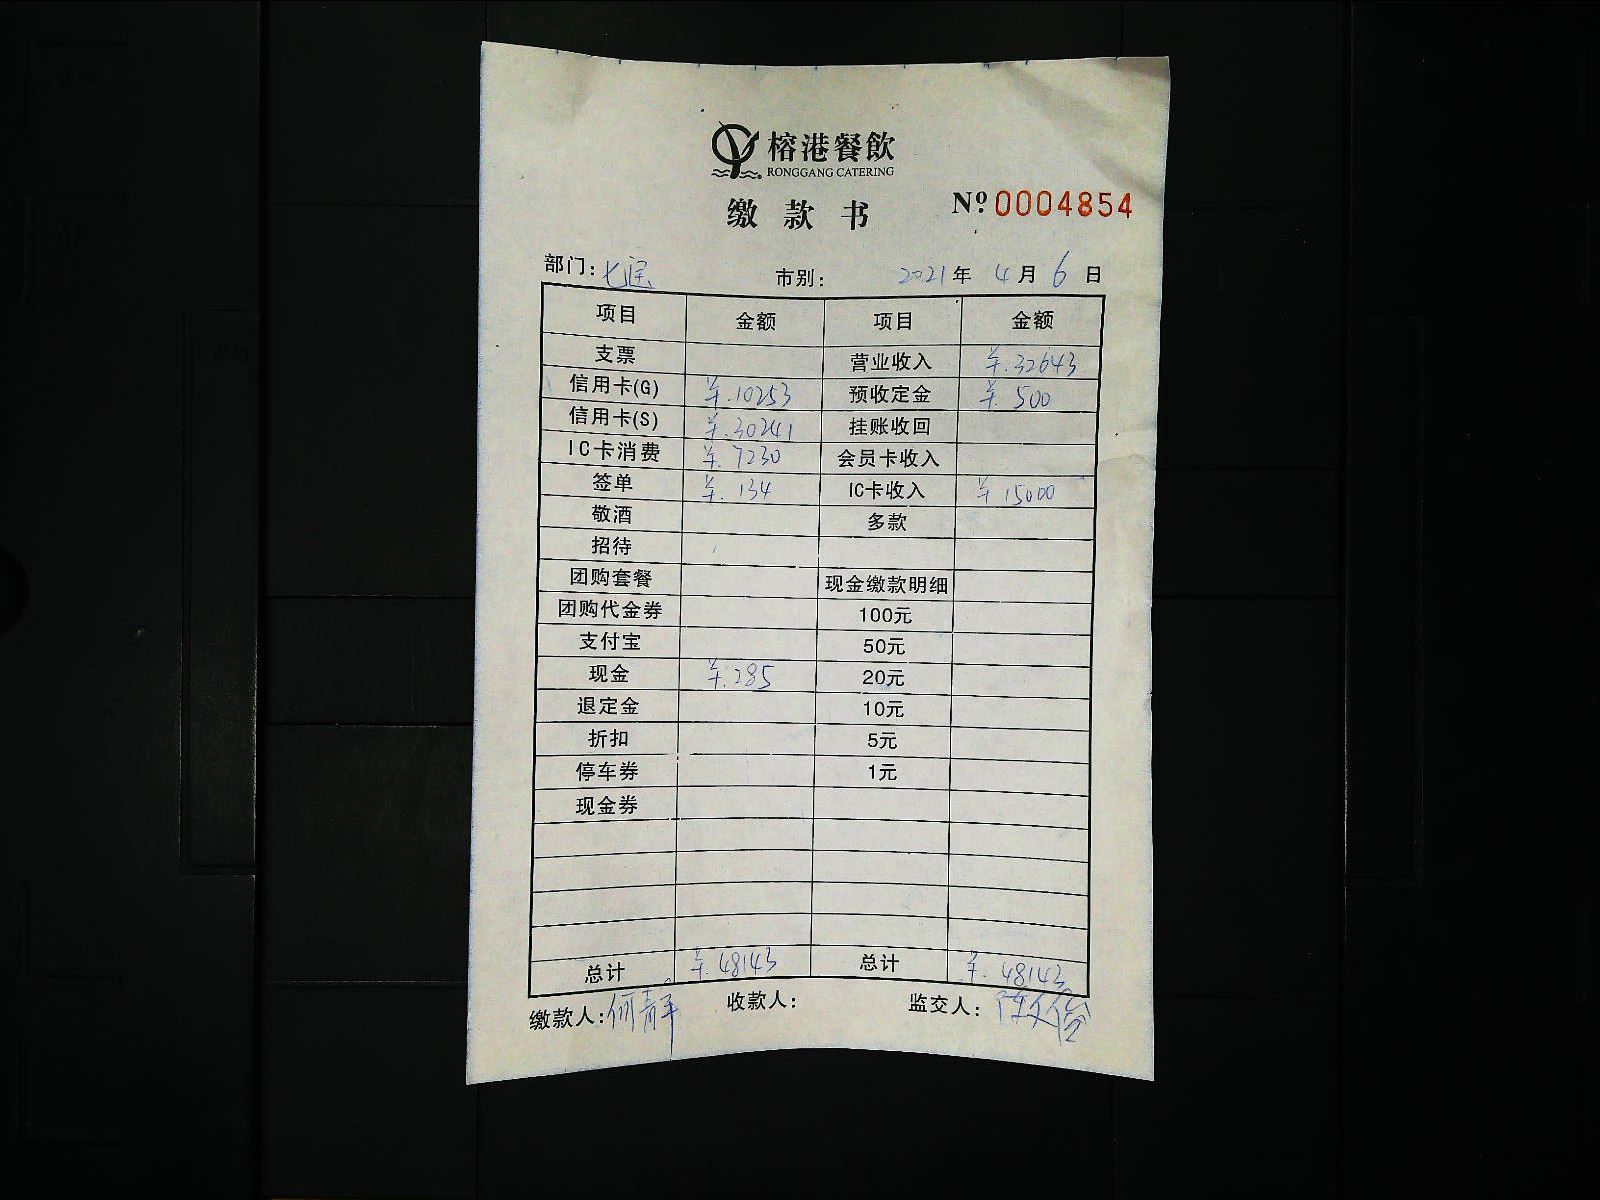 榕港餐飲
RONGGANG CATERING
缴款书 Nº 0004854
部门:七宝 市别: 2021年 4月 6日
项目 金额 项目 金额
支票 营业收入 ¥.32643
信用卡(G) ¥.10253 预收定金 ¥.500
信用卡(S) ¥.30241 挂账收回
IC卡消费 ¥.7230 会员卡收入
签单 ¥.134 IC卡收入 ¥15000
敬酒 多款
招待
团购套餐 现金缴款明细
团购代金券 100元
支付宝 50元
现金 ¥.285 20元
退定金 10元
折扣 5元
停车券 1元
现金券
总计 ¥.48143 总计 ¥.48143
缴款人:何青 收款人: 监交人:陈文